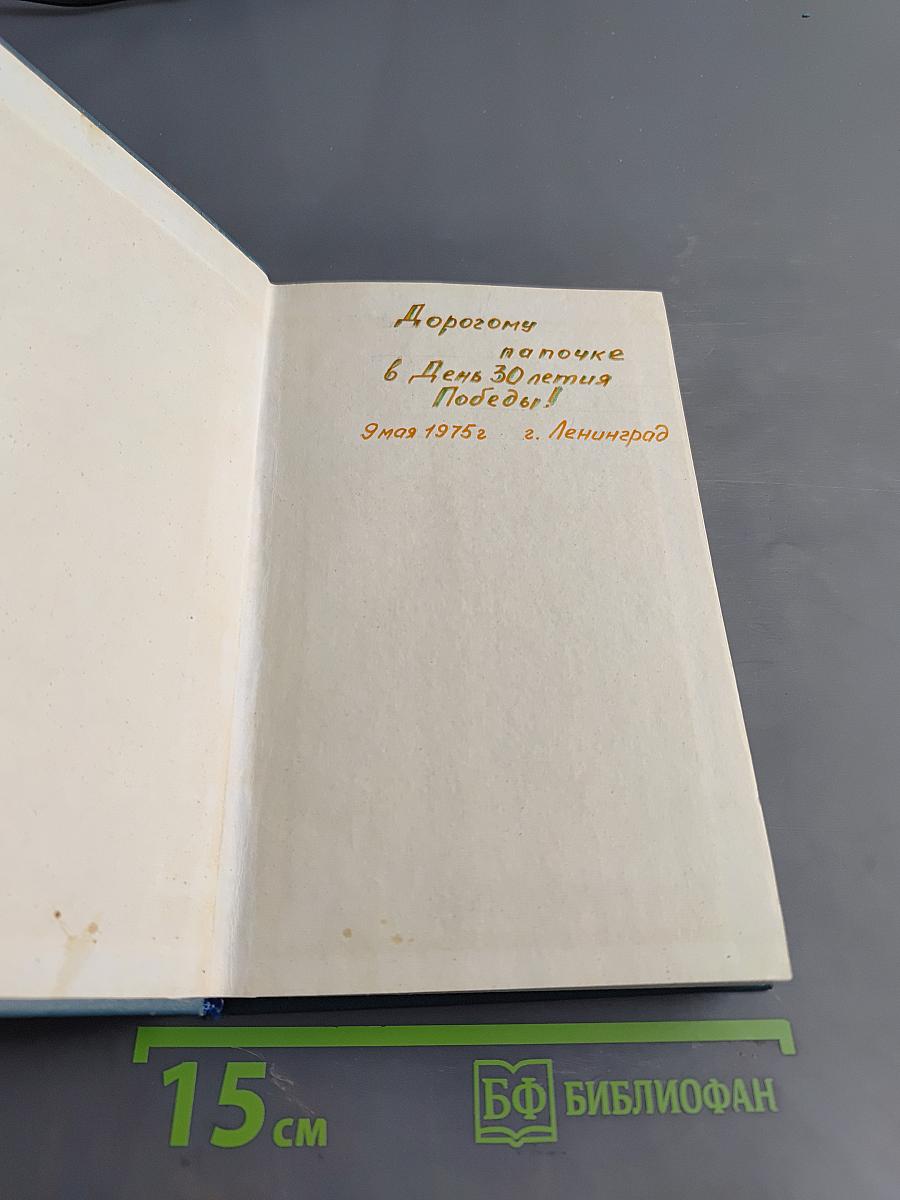 Дорогому
папочке
в День 30 летия
Победы!
9 мая 1975г г. Ленинград
15 см
БФ БИБЛИОФАН